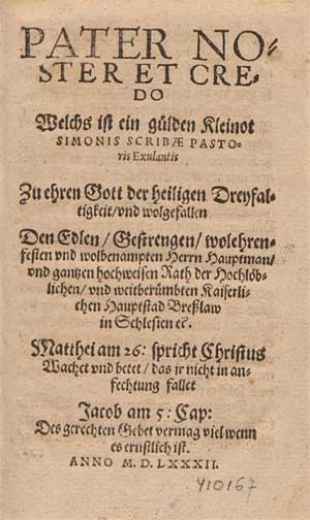 PATER NO-
STER ET CRE-
DO
Welchs ist ein gülden Kleinot
SIMONIS SCRIBÆ PASTO-
ris Exulantis
Zu ehren Gott der heiligen Dreyfal-
tigkeit/vnd wolgefallen
Den Edlen/Gestrengen/wolehren-
festen vnd wolbenampten Herrn Hauptman/
vnd gantzen hochweisen Rath der Hochlöb-
lichen/vnd weitberümbten Kaiserli-
chen Hauptstad Breßlaw
in Schlesien etc.
Matthei am 26: spricht Christus
Wachet vnd betet/das ir nicht in an-
fechtung fallet
Jacob am 5: Cap:
Des gerechten Gebet vermag viel wenn
es ernstlich ist.
ANNO M. D. LXXXII.
Y10167